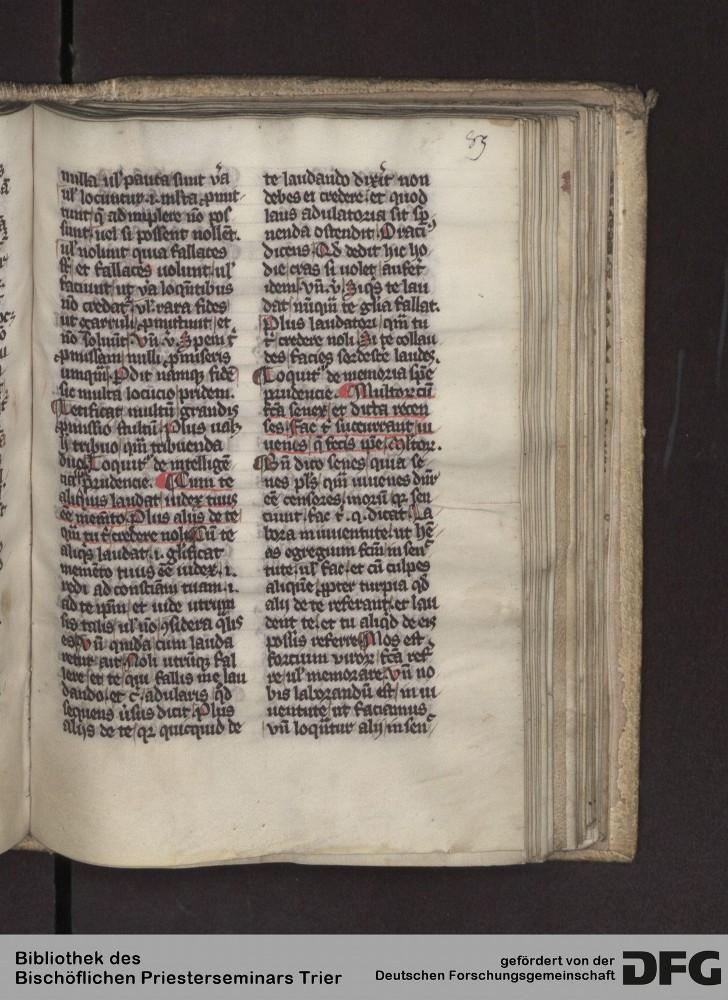 83
milla ul' pauca sunt v̄a
ul' locuntur .i. multa ꝓmit-
tunt q̄ adimplere nō pos
sunt. uel si possent nollēt.
ul' nolunt quia fallaces
st̄ et fallaces uolunt. ul'
faciunt ut va loqūtibus
nō credat̄. ul' rara fides
ut garruli ꝓmittunt. et
nō soluūt. Vn̄. v. Spem t̄
ꝓmissam nulli ꝓmiseris
umq̄m. Pdit namq; fidē
sic multa locucio pridem.
grandis
ꝓmissio stultū. Plus
li tribuo q̄m tribuenda
Loquit̄ de intelligē
prudencie. Cum te
aliquis laudat iudex tuus
ēe memēto. Plus alijs de te
q̄m tu t̄ credere noli. Cū te
aliq̄s laudat .i. gl̄ificat
memēto tuus ēe iudex .i.
redi ad conscīam tuam .i.
ad te ip̄m. et uide utrum
sis talis ul' nō ꝯsidera q̄lis
es. Vn̄ quidā cum lauda
retur ait. Noli utrūq; fal
lere et te qui fallis me lau
dando. et adularis qd̄
sequens uersus dicit. Plus
alijs de te. qz quicquid de
te laudando dixīt non
debes ei credere. et quod
laus adulatoria sit sp̄
nenda ostendit
dicens. Qd̄ dedit hic ho
die cras si uolet aufēt
idem. Vn̄. v. Siq̄s te lau
dat nūq̄m te gl̄ia fallat.
Plus laudatori q̄m tu
t̄ credere noli. Si te collau
des facies sordesce laudes.
Loquit̄ de memoria sp̄e
prudencie. Multor cū
fc̄a senex et dicta recen
ses. Fac t̄ succurrant iu
uenes q̄ fecis
Bn̄ dico senes quia se
nes pl̄s q̄m iuuenes
ēe censores morū qz sen
ciunt. fac t̄. q. dicat. La
bora in iuuentute. ut
as egregium fc̄m in sen
tute. ul' fac. et cū culpes
aliquē ꝓpter turpia qd̄
alij de te referant. et lau
dent te. et tu aliqd̄ de eis
possis referre. Mos est
fortium viror fc̄a ref
re ul' memorare. Vn̄ no
bis laborandū est in iu
uentute. ut faciamus
vn̄ loquntur alij in sen
Bibliothek des
Bischöflichen Priesterseminars Trier
gefördert von der
Deutschen Forschungsgemeinschaft
DFG